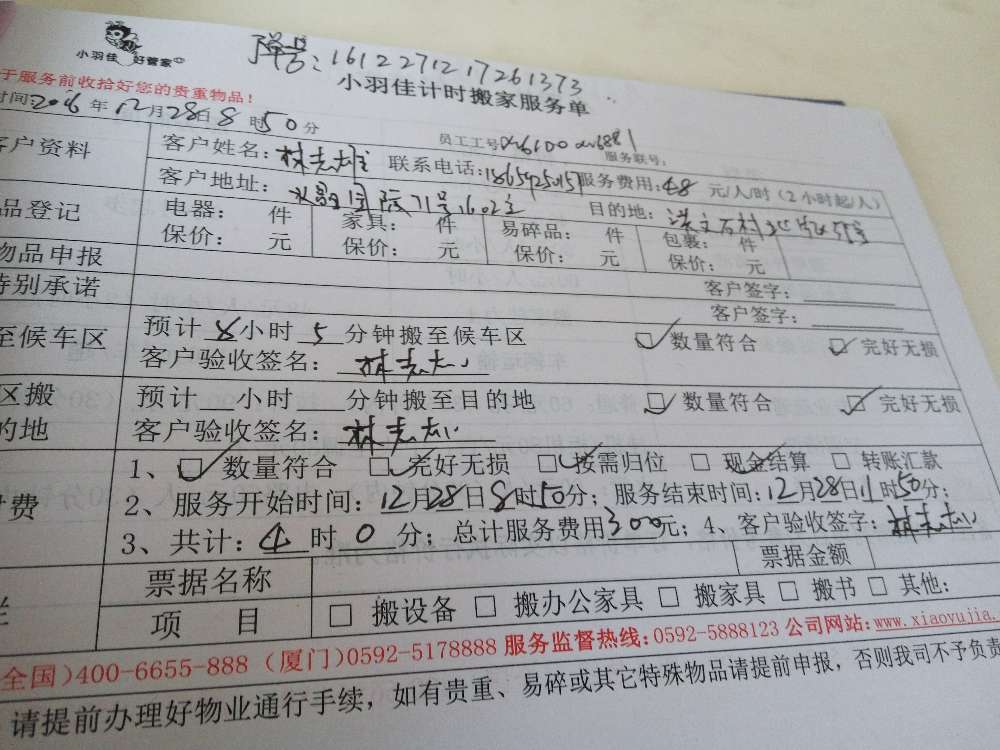 小羽佳 好管家
单号：1612271217261373
小羽佳计时搬家服务单
于服务前收拾好您的贵重物品！
时间2016年12月28日8时50分
员工工号 服务联号：
客户资料 客户姓名： 联系电话： 服务费用：48元/人/时（2小时起/人）
客户地址：国际71号1602室 目的地：
品登记 电器： 件 家具： 件 易碎品： 件 包裹： 件
保价： 元 保价： 元 保价： 元 保价： 元
物品申报 客户签字：
特别承诺 客户签字：
至候车区 预计 小时5分钟搬至候车区 数量符合 完好无损
客户验收签名：
区搬 预计 小时 分钟搬至目的地 数量符合 完好无损
的地 客户验收签名：
1、数量符合 完好无损 按需归位 现金结算 转账汇款
付费 2、服务开始时间：12月28日8时50分；服务结束时间：12月28日11时50分；
3、共计：4时0分；总计服务费用300元；4、客户验收签字：
票据名称 票据金额
栏 项 目 □ 搬设备 □ 搬办公家具 □ 搬家具 □ 搬书 □ 其他：
全国）400-6655-888（厦门）0592-5178888 服务监督热线：0592-5888123 公司网站：www.xiaoyujia.
请提前办理好物业通行手续，如有贵重、易碎或其它特殊物品请提前申报，否则我司不予负责